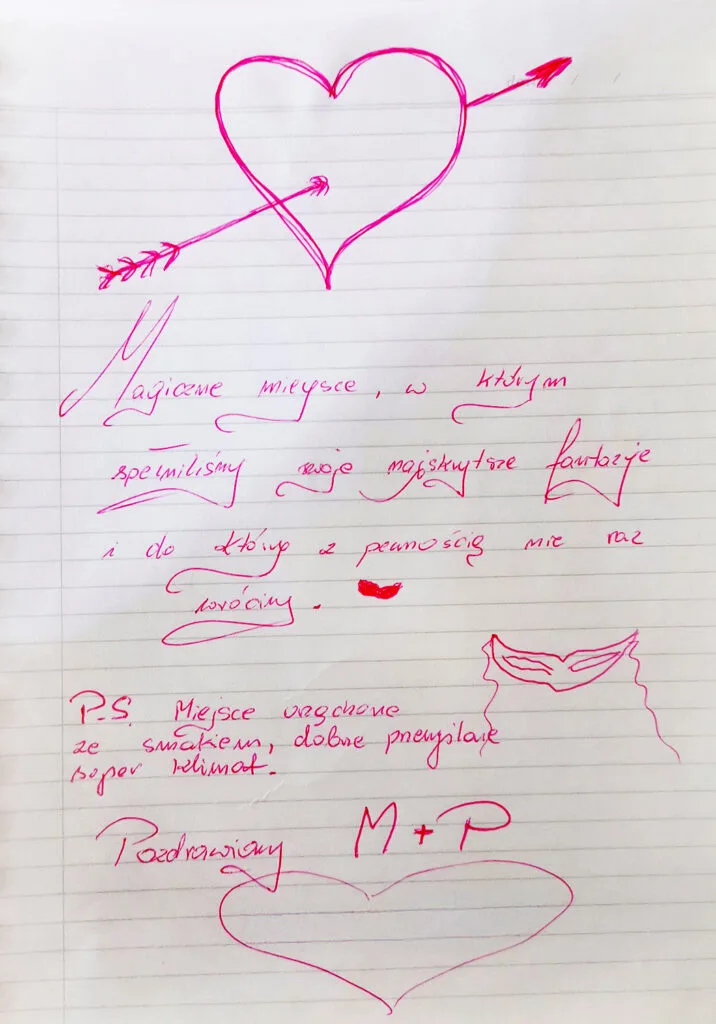 Magiczne miejsce, w którym
spełniliśmy swoje najskrytsze fantazje
i do który z pewnością nie raz
wrócimy.
P.S. Miejsce urządzone
ze smakiem, dobrze przemyślane
super klimat.
Pozdrawiamy M + P